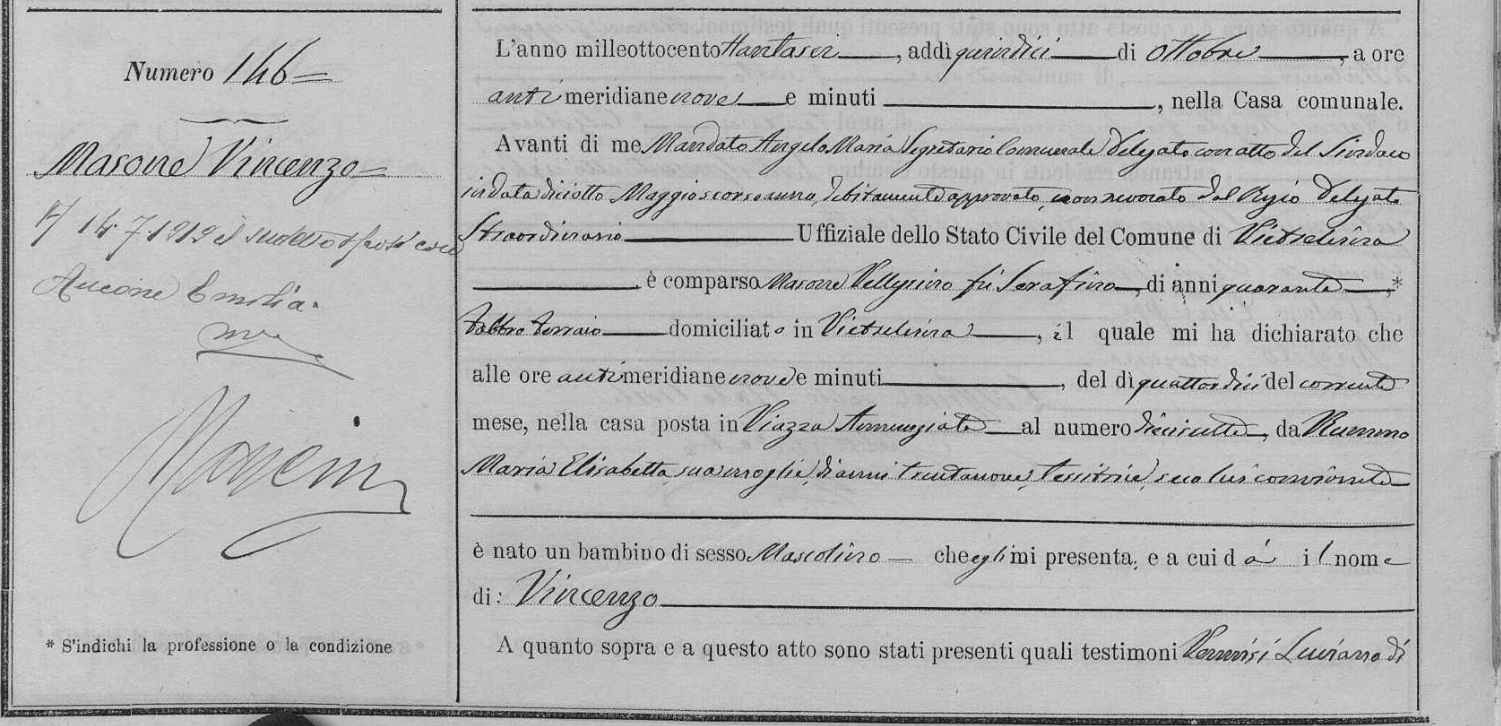 Numero 146=
Masone Vincenzo=
14 7 1919 il
Emilia.
* S'indichi la professione o la condizione
L'anno milleottocento, addì quindici di Ottobre, a ore
anti meridiane nove e minuti, nella Casa comunale.
Avanti di me Mandato Angelo Maria Segretario Comunale Delegato con atto del Sindaco
in data diciotto Maggio scorso anno, debitamente approvato, non revocato dal Regio Delegato
Straordinario Uffiziale dello Stato Civile del Comune di Pietrelcina
è comparso Masone Pellegrino fu Serafino, di anni quaranta,*
fabbro ferraio domiciliato in Pietrelcina, il quale mi ha dichiarato che
alle ore antimeridiane nove e minuti, del dì quattordici del corrente
mese, nella casa posta in Piazza Annunziata al numero, da
Maria Elisabetta, sua moglie, di anni trentanove, tessitrice, seco lui convivente
è nato un bambino di sesso Mascolino che egli mi presenta, e a cui dà il nome
di: Vincenzo
A quanto sopra e a questo atto sono stati presenti quali testimoni Luciano di